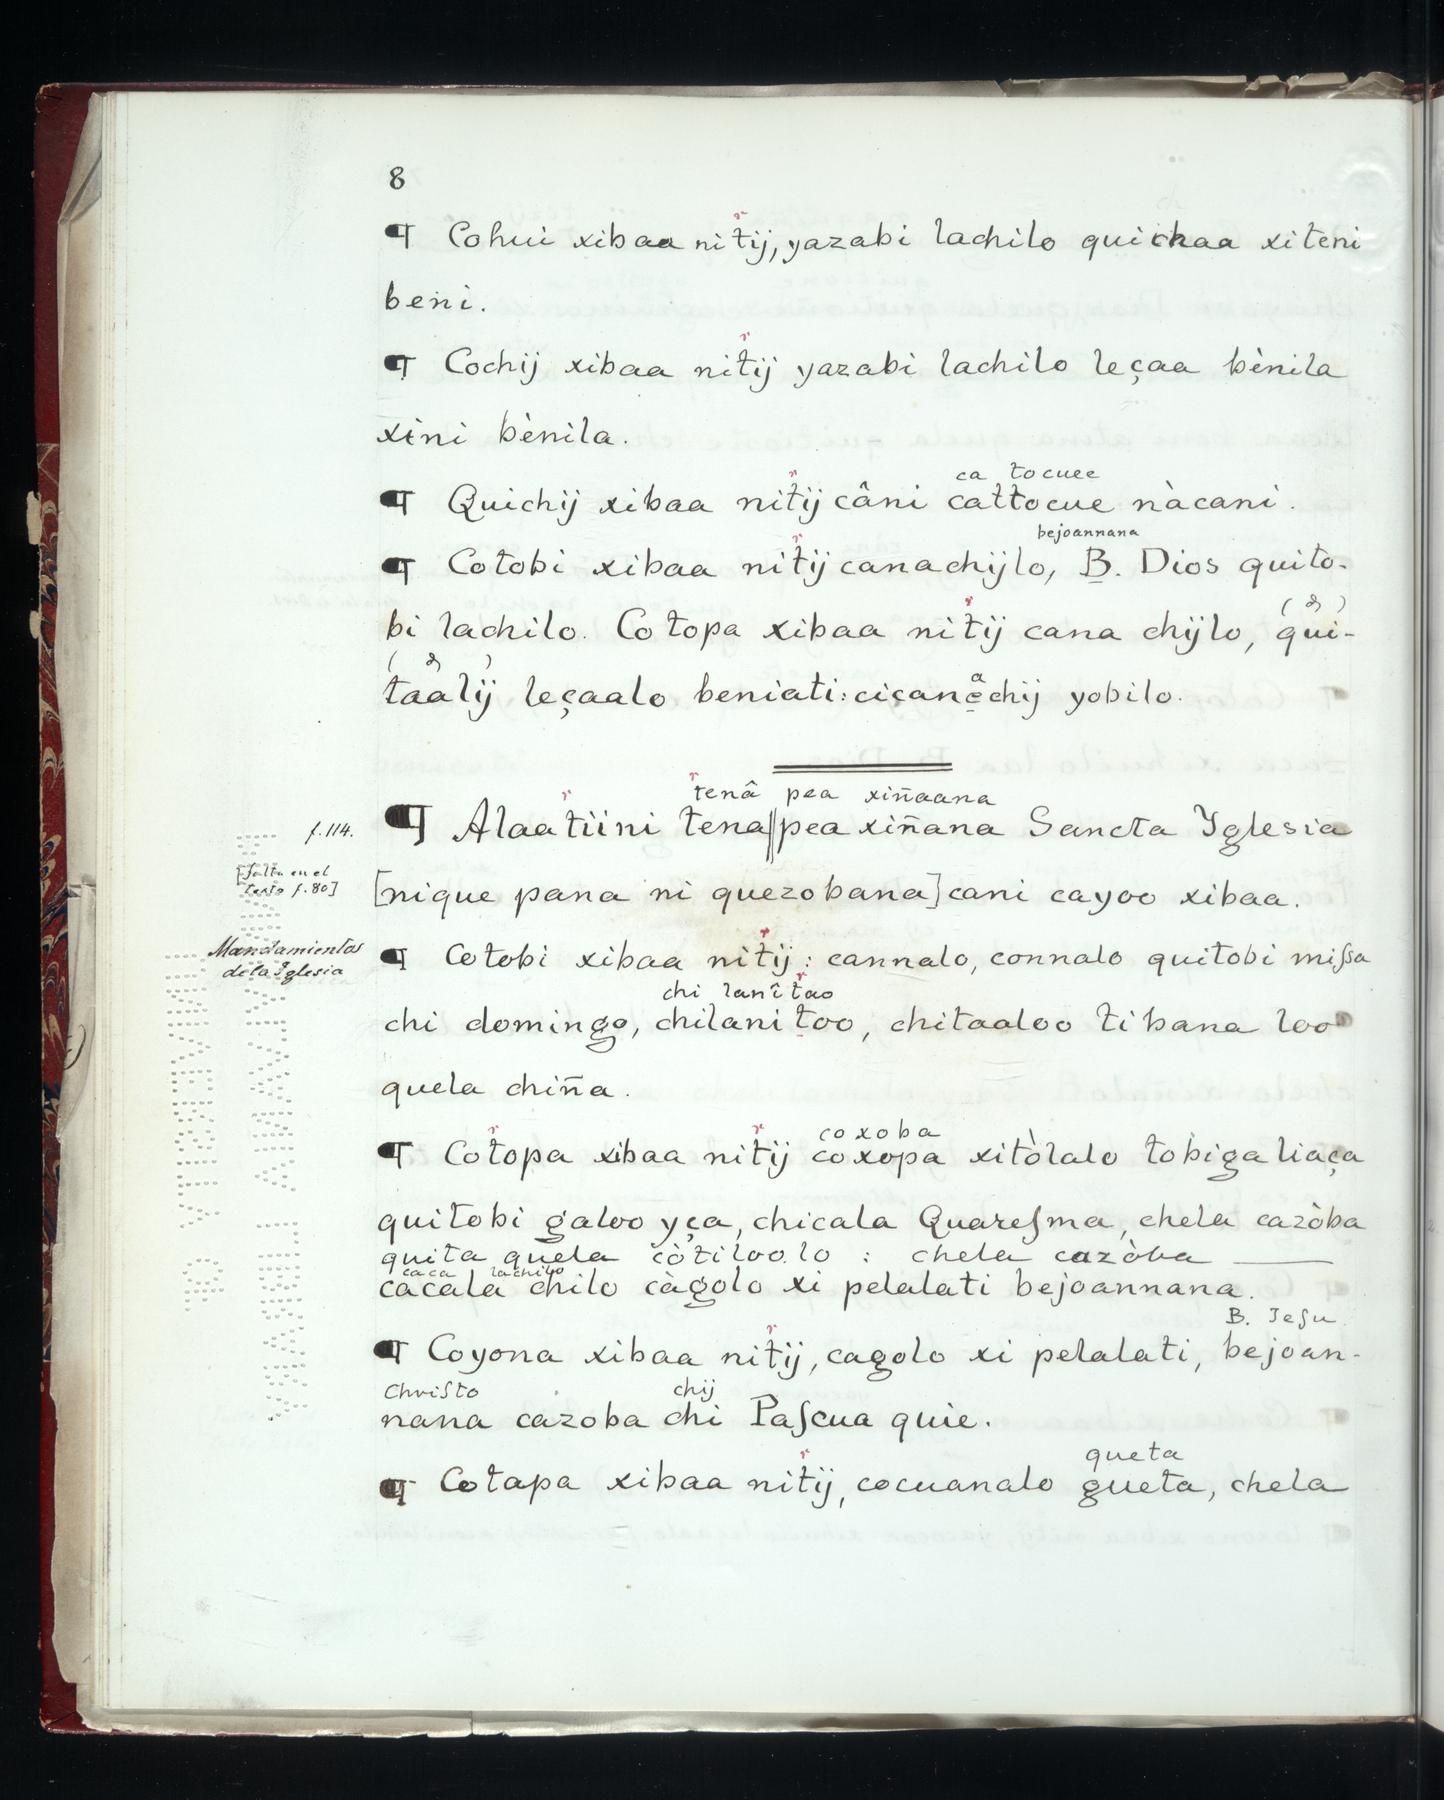 8
¶ Cohui xibaa nitij, yazabi lachilo quichaa xiteni
beni.
¶ Cochij xibaa nitij yazabi lachilo leçaa bènila
xini bènila.
ca tocuee
¶ Quichij xibaa nitij câni cattocue nàcani.
bejoannana
¶ Cotobi xibaa nitij canachijlo, B. Dios quito-
bi lachilo. Cotopa xibaa nitij cana chijlo, qui-
taalij leçaalo beniati: ciçanechij yobilo.
a
tenâ pea xiñaana
f. 114.
¶ Alaatiini tena||pea xiñana Sancta Yglesia
[falta en el
texto f. 80]
[nique pana ni quezobana] cani cayoo xibaa.
Mandamientos
de la Iglesia
¶ Cotobi xibaa nitij: cannalo, connalo quitobi miſsa
chi lanî tao
chi domingo, chilani too, chitaaloo tibana loo
quela chiña.
coxoba
¶ Cotopa xibaa nitij coxopa xitòlalo tobigaliaça
quitobi galoo yça, chicala Quareſma, chela cazòba
quita quela còtiloo.lo : chela cazòba
caca lachilo
cacala chilo càgolo xi pelalati bejoannana.
B. Jeſu
¶ Coyona xibaa nitij, cagolo xi pelalati, bejoan-
Chriſto chij
nana cazoba chi Paſcua quie.
queta
¶ Cotapa xibaa nitij, cocuanalo gueta, chela